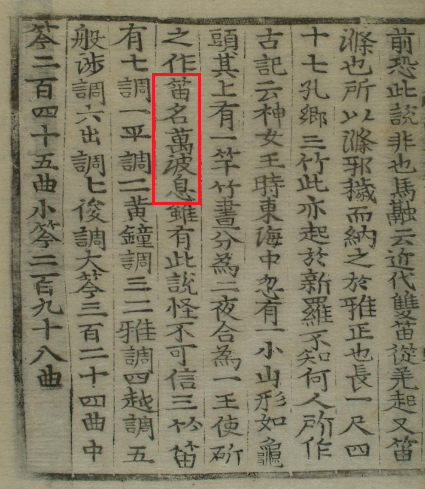 前恐此說非也馬融云近代雙笛從羌起又笛
滌也所以滌邪穢而納之於雅正也長一尺四
十七孔鄕三竹此亦起於新羅不知何人所作
古記云神女王時東海中忽有一小山形如龜
頭其上有一竿竹晝分為二夜合為一王使斫
之作笛名萬波息雖有此說怪不可信三竹笛
有七調一平調二黃鐘調三二雅調四越調五
般涉調六出調七俊調大笒三百二十四曲中
笒二百四十五曲小笒二百九十八曲